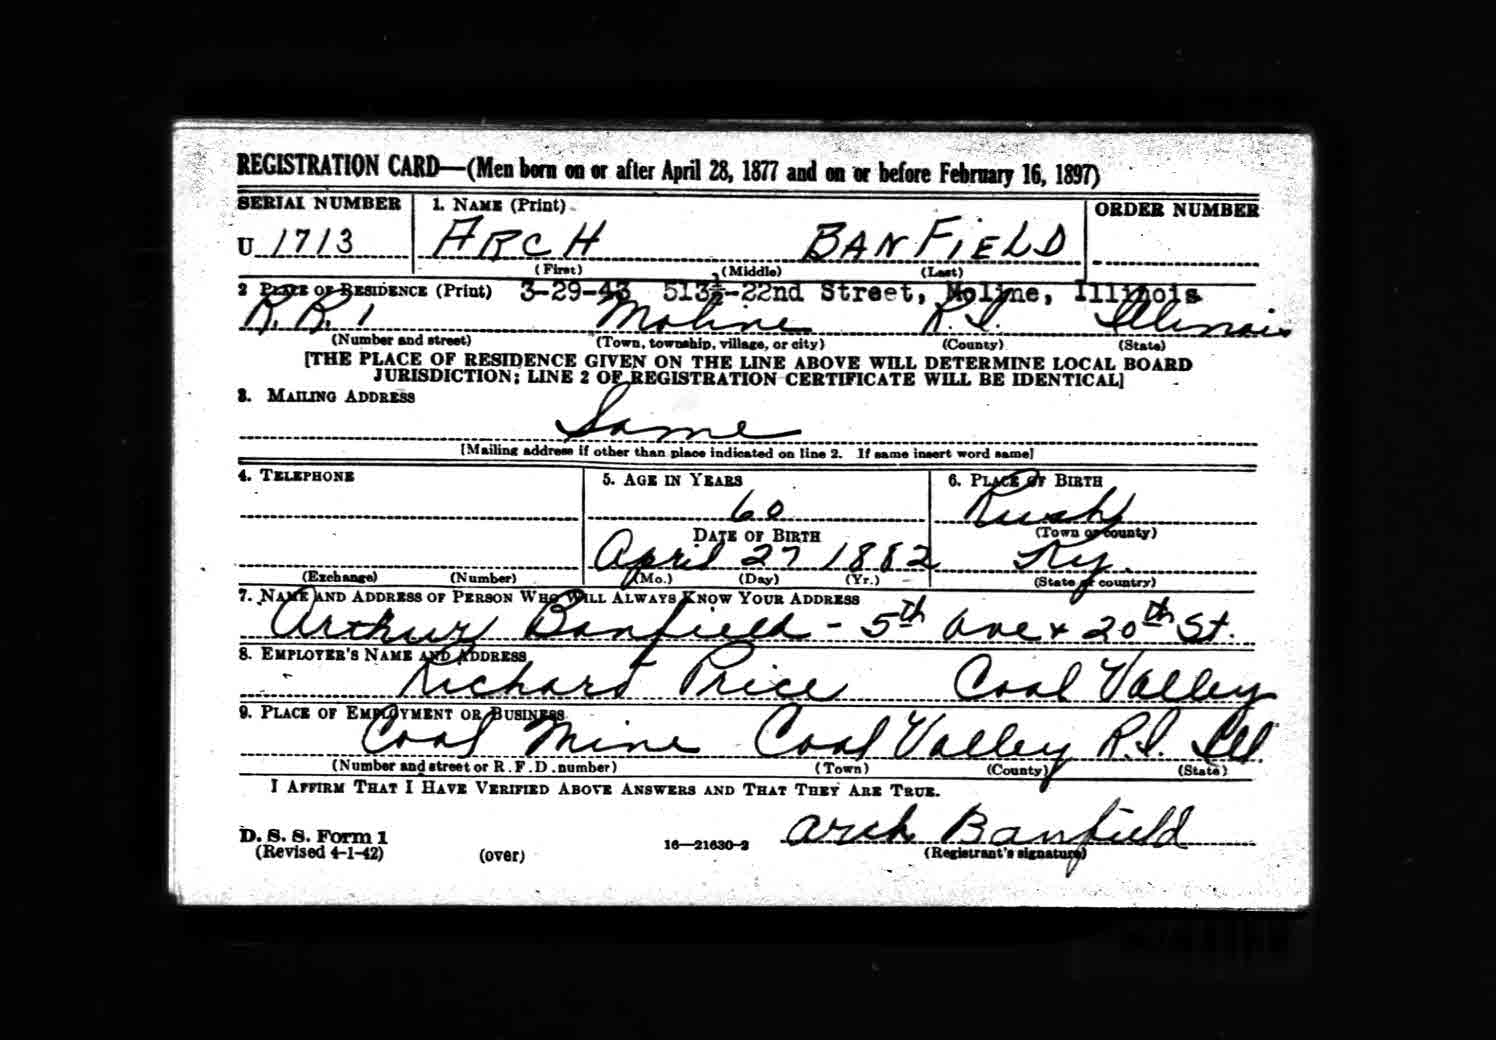 REGISTRATION CARD—(Men born on or after April 28, 1877 and on or before February 16, 1897)
SERIAL NUMBER 1. NAME (Print) ORDER NUMBER
U 1713 ARCH BANFIELD
(First) (Middle) (Last)
2 PLACE OF RESIDENCE (Print) 3-29-43 513½-22nd Street, Moline, Illinois
R.R. 1 Moline R.I. Illinois
(Number and street) (Town, township, village, or city) (County) (State)
[THE PLACE OF RESIDENCE GIVEN ON THE LINE ABOVE WILL DETERMINE LOCAL BOARD
JURISDICTION; LINE 2 OF REGISTRATION CERTIFICATE WILL BE IDENTICAL]
3. MAILING ADDRESS
Same
[Mailing address if other than place indicated on line 2. If same insert word same]
4. TELEPHONE 5. AGE IN YEARS 6. PLACE OF BIRTH
60 Rush
DATE OF BIRTH (Town or county)
April 27 1882 Ky.
(Exchange) (Number) (Mo.) (Day) (Yr.) (State or country)
7. NAME AND ADDRESS OF PERSON WHO WILL ALWAYS KNOW YOUR ADDRESS
Arthur Banfield - 5th Ave + 20th St.
8. EMPLOYER'S NAME AND ADDRESS
Richard Price Coal Valley
9. PLACE OF EMPLOYMENT OR BUSINESS
Coal Mine Coal Valley R.I. Ill.
(Number and street or R. F. D. number) (Town) (County) (State)
I AFFIRM THAT I HAVE VERIFIED ABOVE ANSWERS AND THAT THEY ARE TRUE.
D. S. S. Form 1
(Revised 4-1-42) (over) 16—21630-2 Arch Banfield
(Registrant's signature)